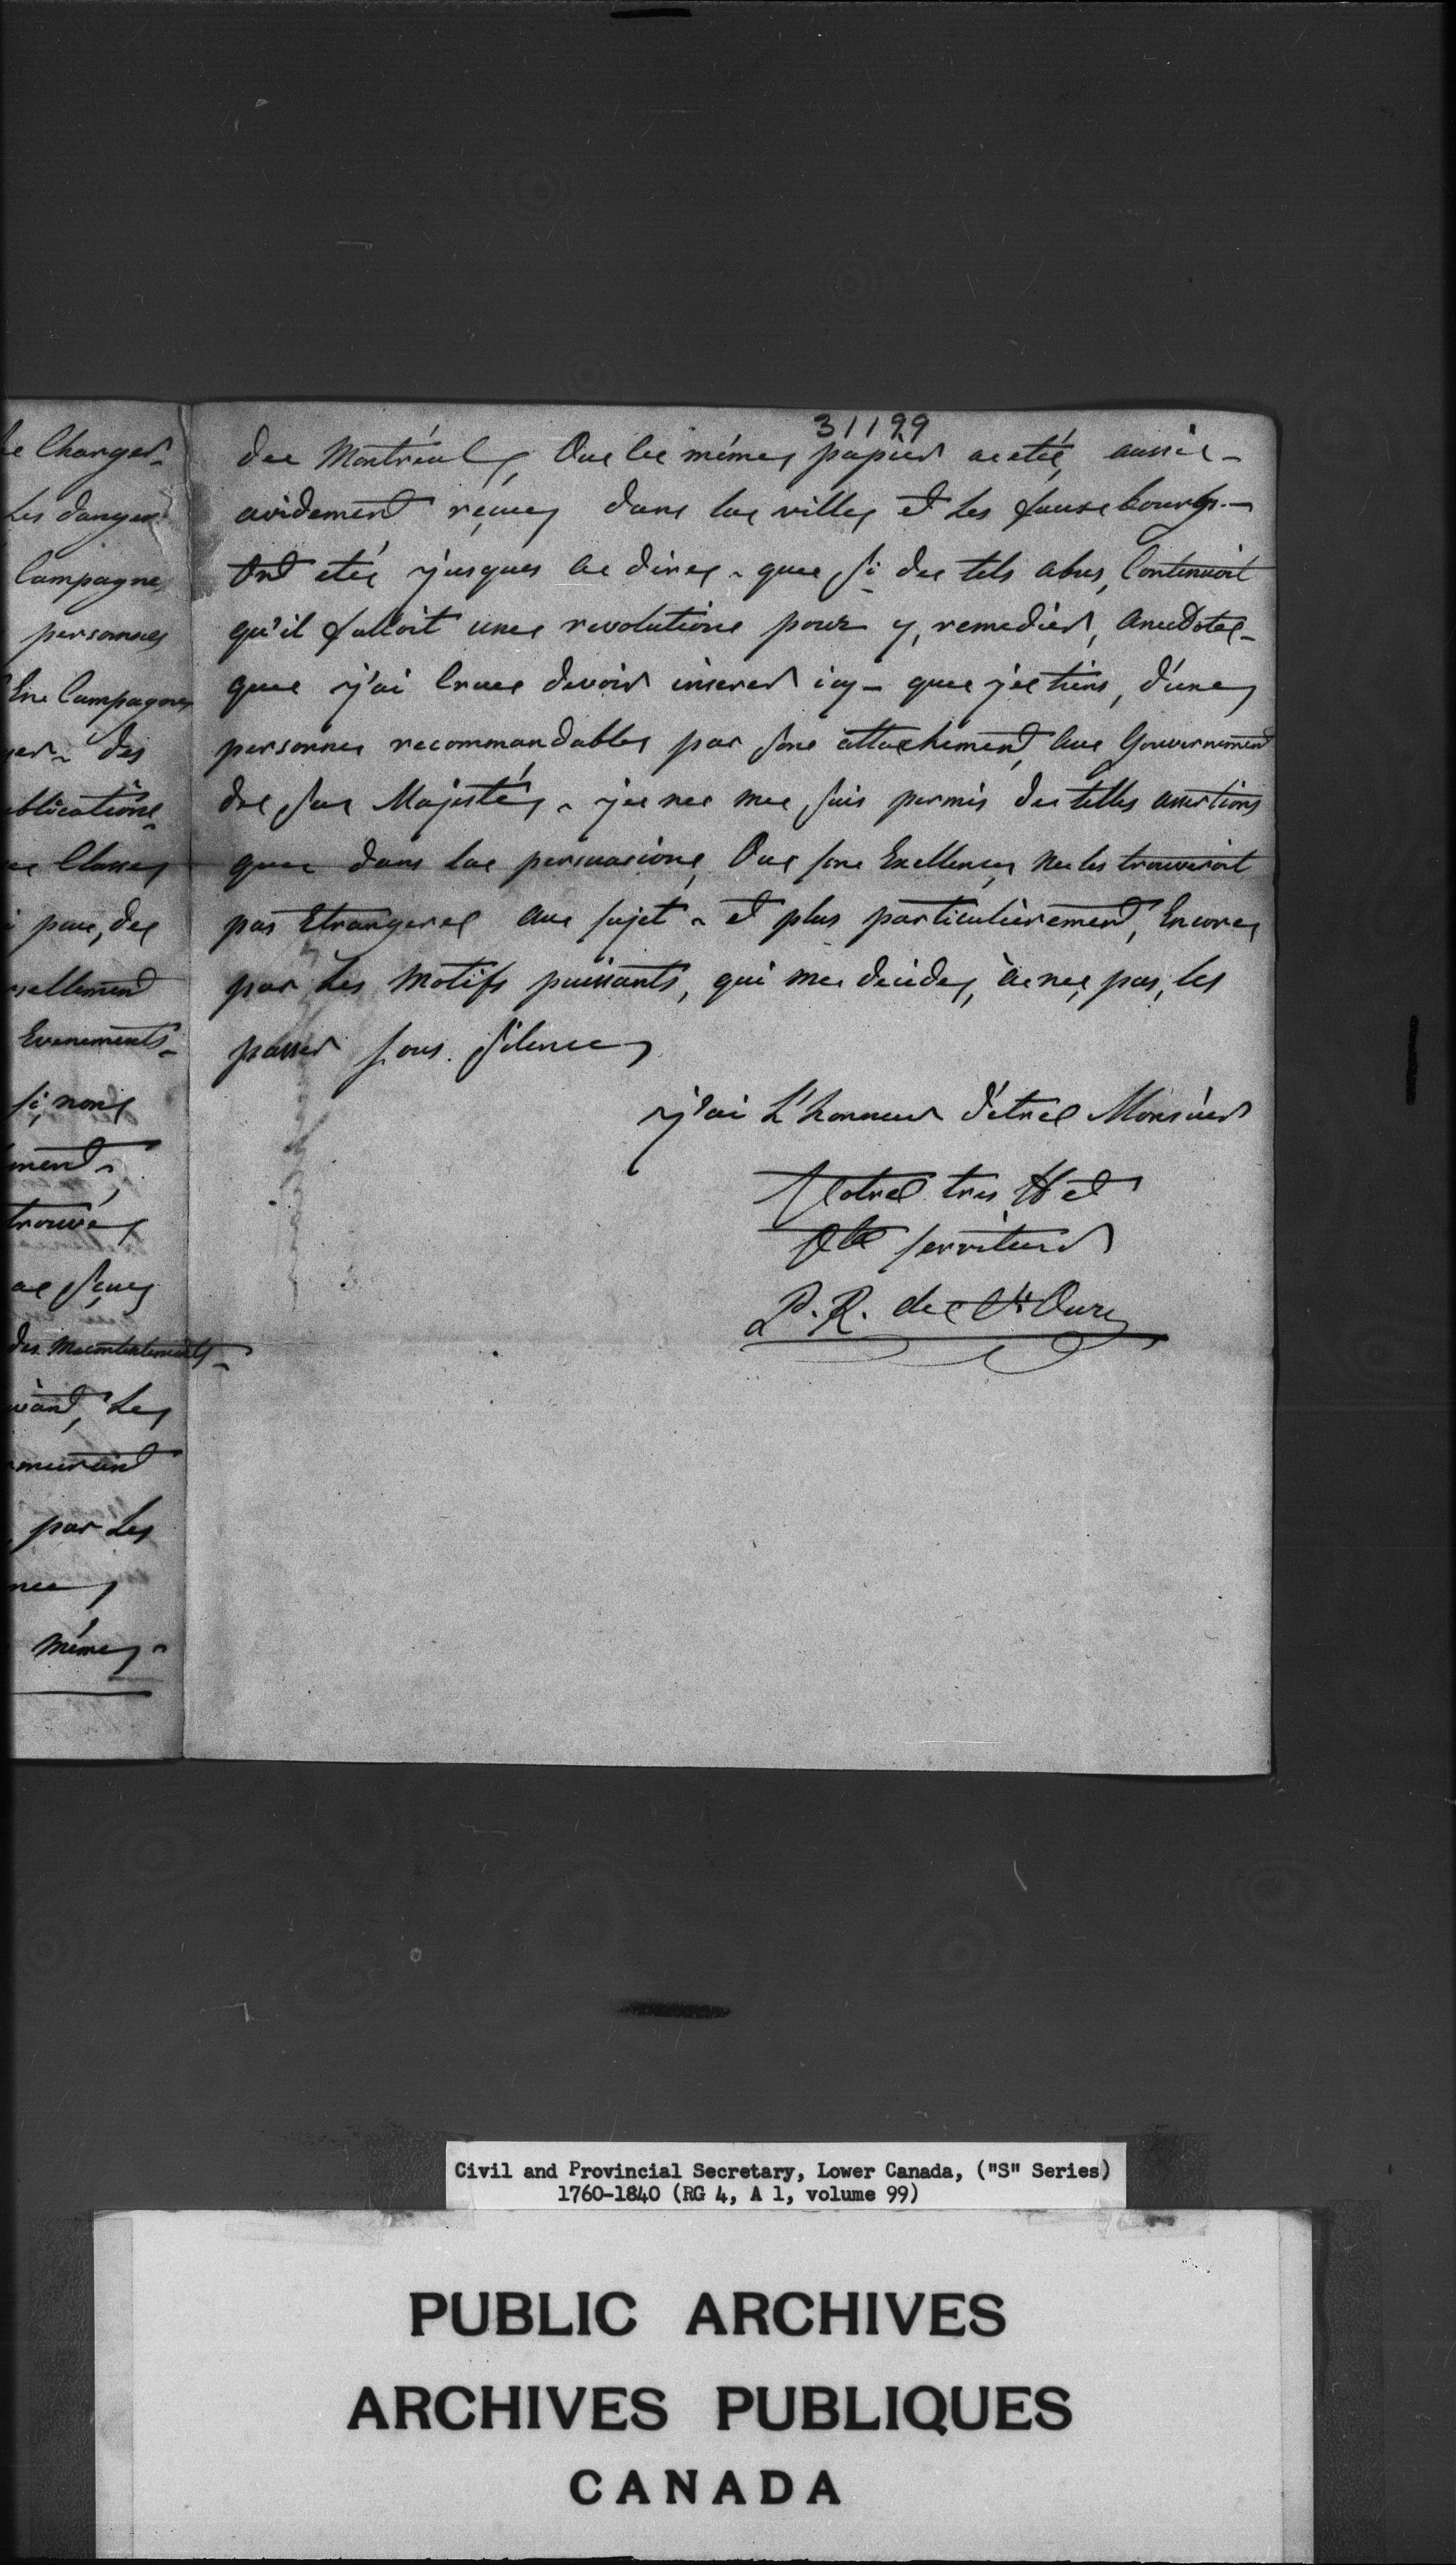 31199
Le Charger
Les danger
Campagne
personnes
En Campagne
des
ublication
Classe
pour, de
Evenements
si, non
ment
trouvé
des mecontentements
vant, Les
par Les
même
de Montréal, que le même papier a eté, aussi
avidement réçue, dans la ville, et Les fauxbourgs
ond eté, jusques a dire, que si de tels abus, Continuoit
qu'il falloit une revolution pour y, remedier, anecdote
que j'ai Crue devoir inserer icy - que je tiens, d'une
personne recommandable, par son attachement, au Gouvernement
de sa Majesté, je ne me suis permis de telles assertions
que dans la persuasion, Que son Excellence, ne les trouveroit
pas Etrangeres au sujet - et plus particulièrement, Encore
par Les Motifs puissants, qui me decide, à ne, pas, les
passer sous silence
j'ai L'honneur d'etre Monsieur
Votre tres H et
serviteur
P. R. de St Ours
Civil and Provincial Secretary, Lower Canada, ("S" Series)
1760-1840 (RG 4, A 1, volume 99)
PUBLIC ARCHIVES
ARCHIVES PUBLIQUES
CANADA